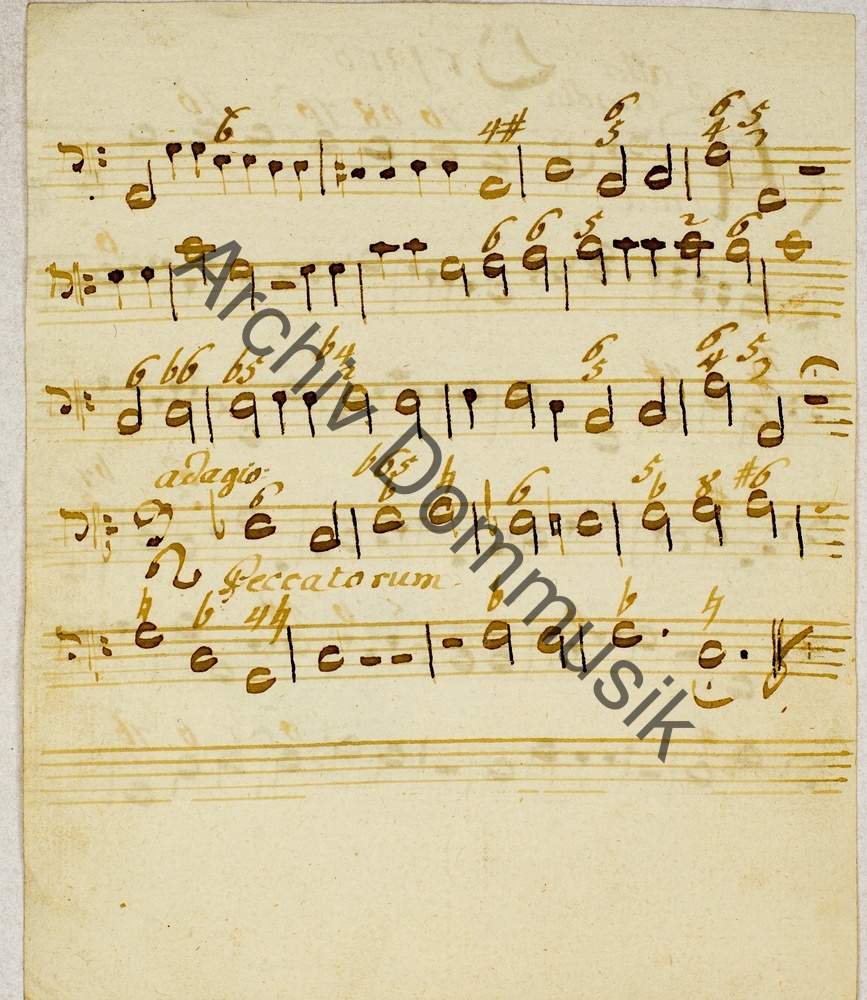 6 4# 6 6 5
5 4 7
6 6 5 2 6
6 b6 b5 b4 6 6 5
2 5 4 7
adagio.
6 bb5 ♮ 6 5 8 #6
6 6
Peccatorum.
♮ 6 4♮ 6 6 ♮
Archiv Dommusik